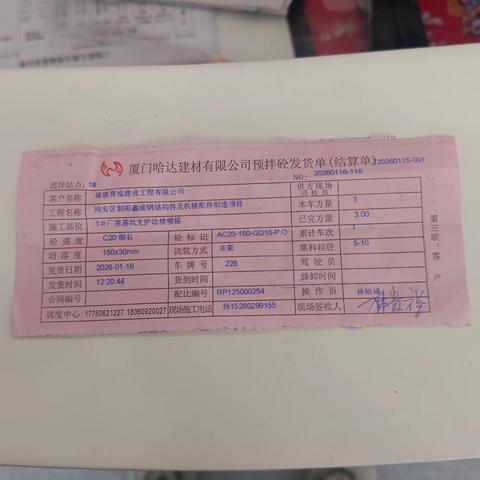 厦门哈达建材有限公司预拌砼发货单(结算单)
220260115-001
搅拌站点: 1# NO: 20260116-118
客户名称 福建育泓建设工程有限公司 供方现场质检员
工程名称 同安区朝阳鑫成钢结构件及机械配件制造项目 本车方量 3
施工部位 1#厂房基坑支护边坡喷锚 已完方量 3.00
砼强度 C20-细石 砼标记 AC20-150-GD10-P.O 累计车次 1
坍落度 150±30mm 浇筑方式 非泵 集料粒径 5-10
发货日期 2026-01-16 车牌号 229 驾驶员
发货时间 12:20:44 到货时间 终卸时间
合同编号 配比编号 RP125000254 操作员 林旭斌
调度中心: 17750621227 18060920027 现场施工电话 杨15280299155 现场签收人
第三联:客户